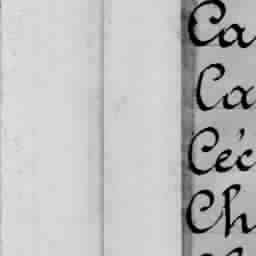 Ca
Ca
Céc
Ch